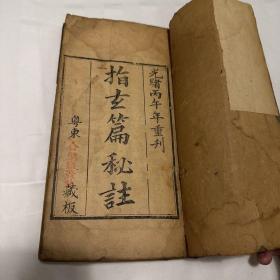 光緒丙午年重刊
指玄篇秘註
粤東
藏板